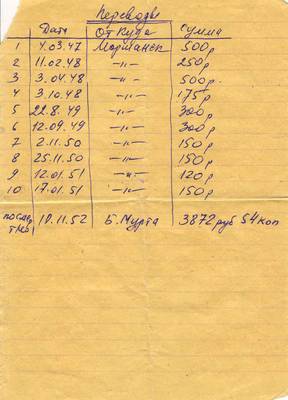 Переводы
Дата От куда Сумма
1 4.03.47 Моршанск 500р
2 11.02.48 —"— 250р
3 3.04.48 —"— 500р.
4 3.10.48 —"— 175р
5 22.8.49 —"— 300р
6 12.09.49 —"— 300р
7 2.11.50 —"— 150р
8 25.11.50 —"— 150р
9 12.01.51 —"— 120р
10 17.01.51 —"— 150р
11.52 Б. Мурта 3872 руб 54 коп